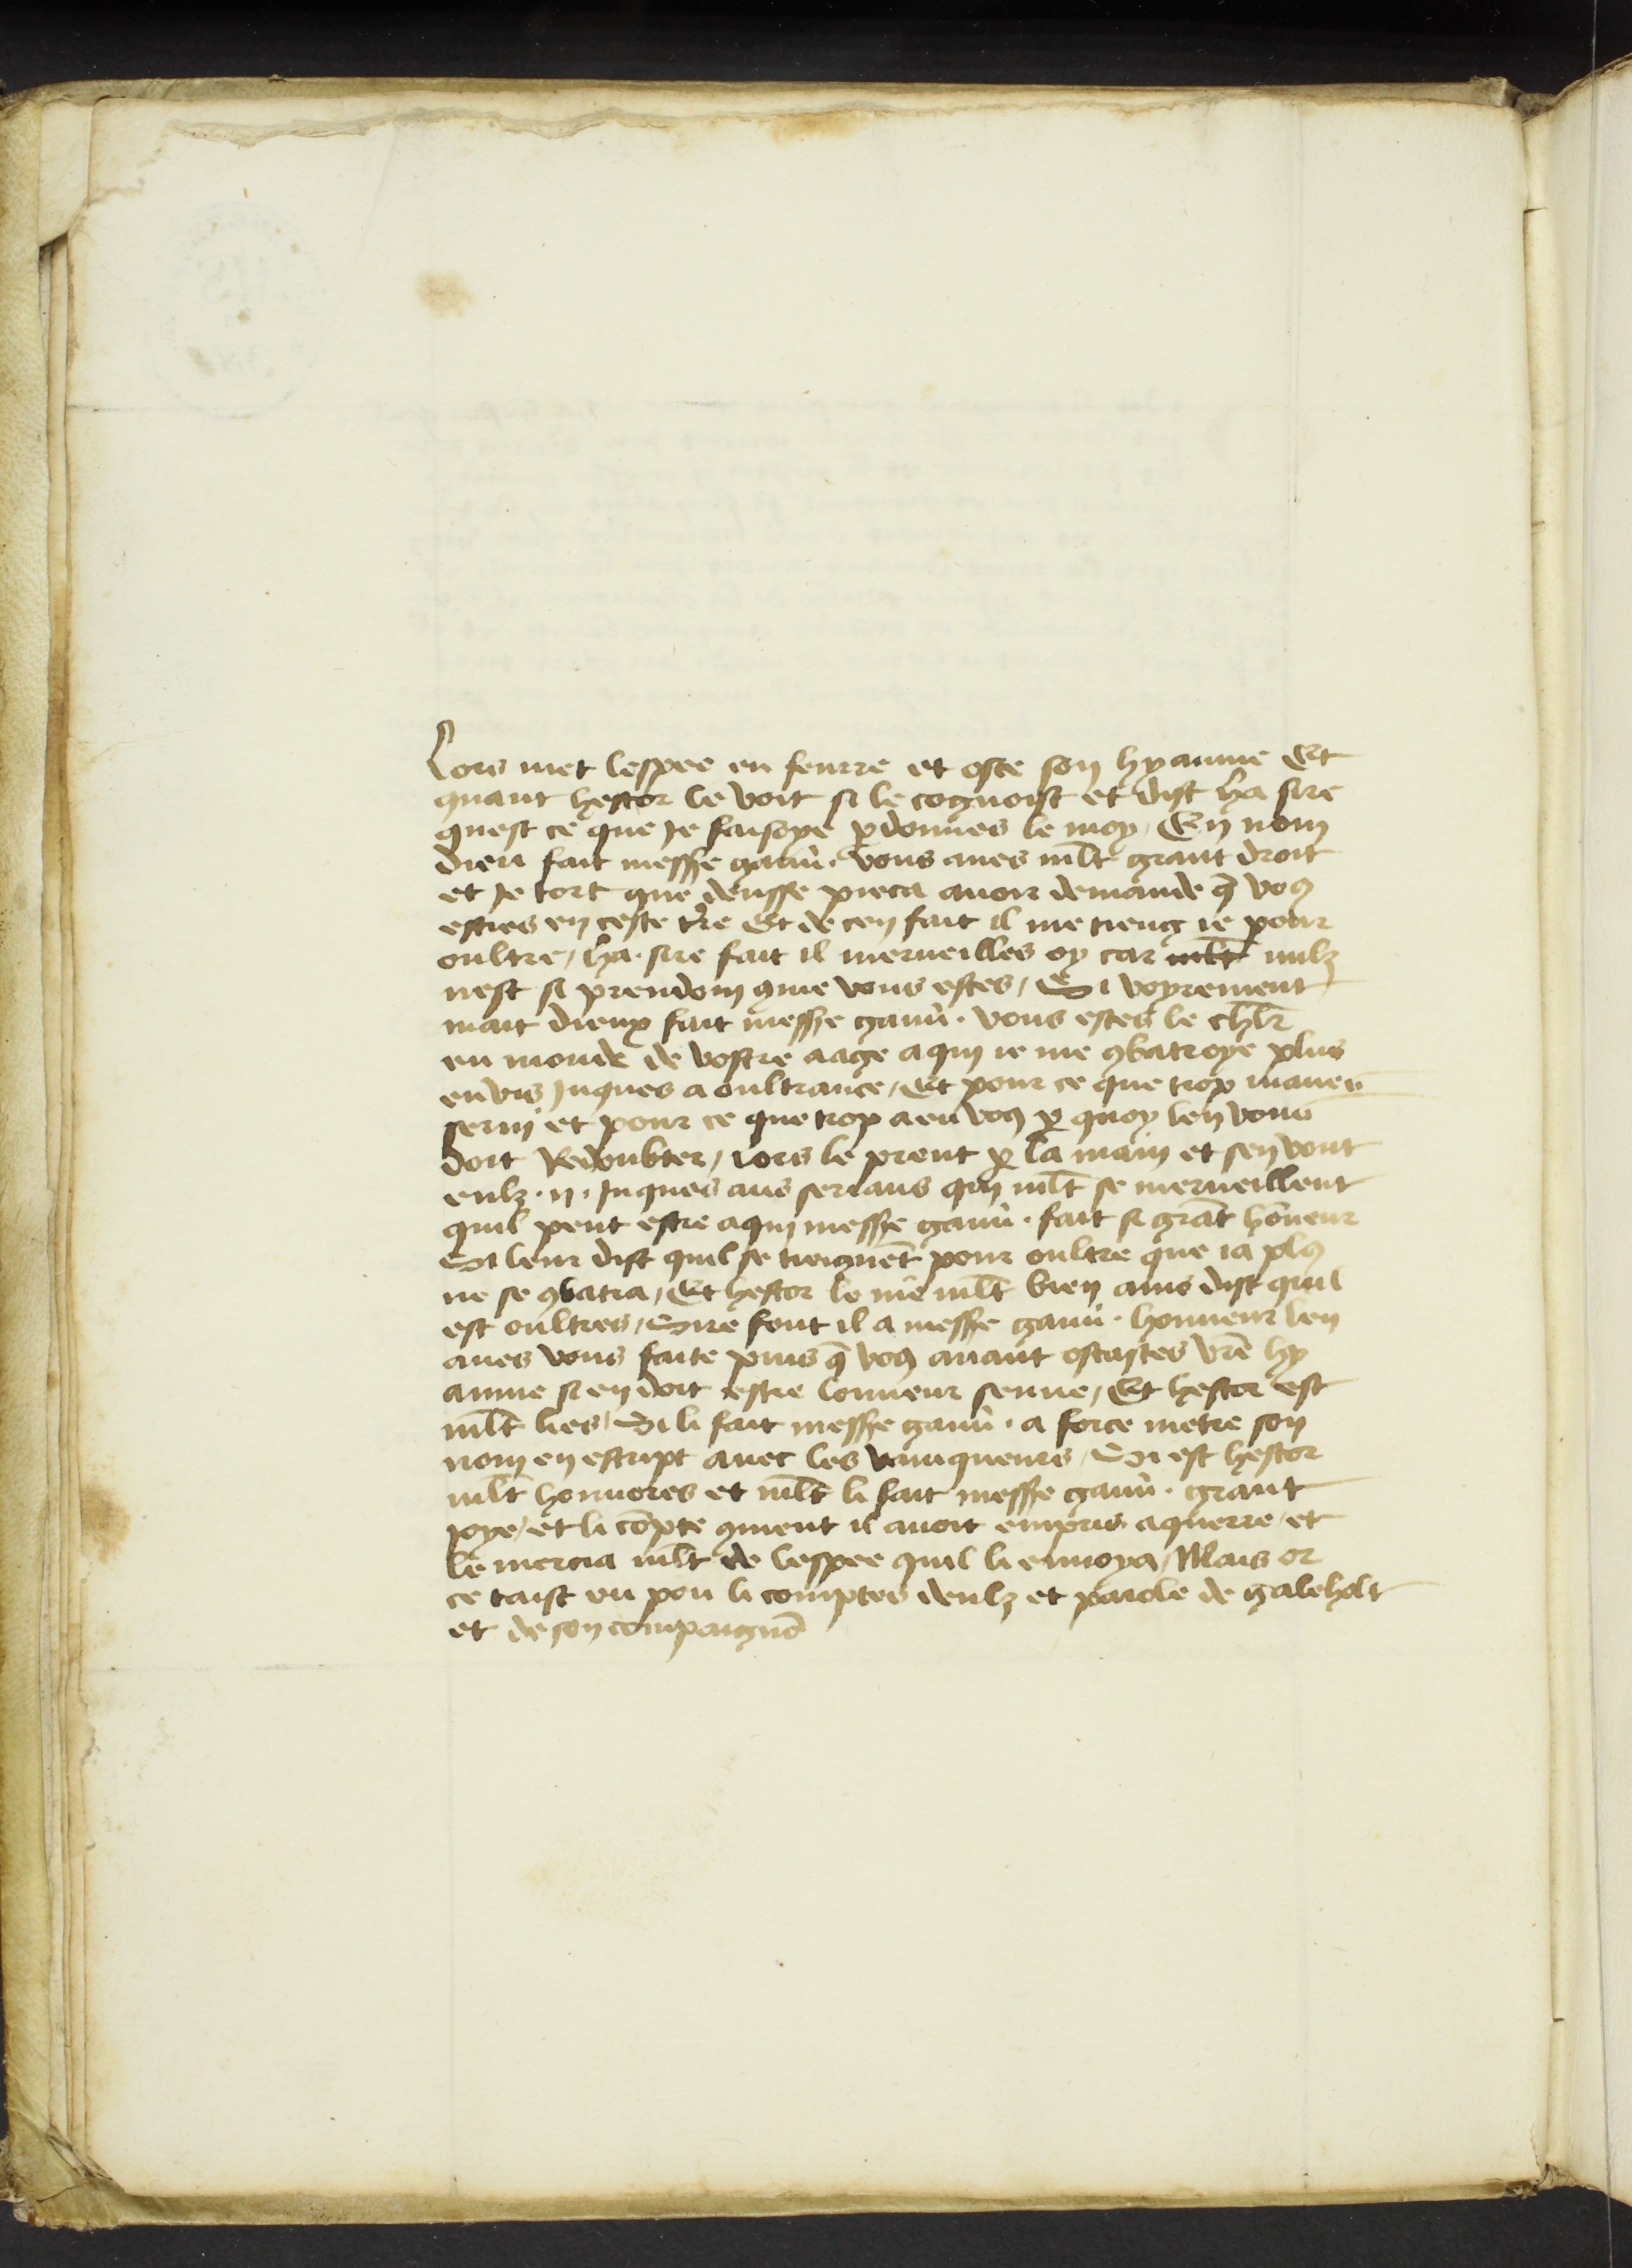 Lors met lespee en feurre et oste son hyaume Et
quant hector le voit si le cognoist et dist ha sire
quest ce que Je faisoye ꝑdonnes le moy / En nom
dieu fait messe gauu̅ . vous aues ml̅t grant droit
et Je tort que deusse pieca auoir demande q̅ voꝯ
esties en ceste tr̅e Et de cen fait il me tieng ie pour
oultre / ha . sire fait il merueilles oy car ml̅t nulz
nest si preudom ꝯme vous estes / Si voyrement
mait dieux fait messe gauu̅ . vous estes le chl̅r
eu monde de vostre aage a qui ie me ꝯbatroye plus
enuis Juques a oultrance / Et pour ce que trop maues
serui et pour ce que trop a eu voꝯ ꝑ quoy len vous
doit Redoubter / Lors le prent ꝑ la main et sen vont
eulz . ıı . Juques aus serians qui ml̅t se merueillent
quil peut estre a qui messe gauu̅ . fait si gra̅t ho̅neur
Si leur dist quil se tieigne̅t pour oultre que ia plꝯ
ne se ꝯbatra / Et hector le nie ml̅t bien ains dist quil
est oultres / Sire font il a messe gauu̅ . honneur len
aues vous faite puis q̅ voꝯ auant ostastes vr̅e hy
aume si en doit estre lonneur seune / Et hector est
ml̅t lies / Si li fait messe gauu̅ . a force metre son
nom en escript auec les vainqueurs / Si est hector
ml̅t honnores et ml̅t li fait messe gauu̅ . grant
Joye / et li co̅pte ꝯment il auoit empris a querre / et
le mercia ml̅t de lespee quil li enuoya / Mais or
ce taist un pou li comptes deulz et parole de galeholt
et de son compaigno̅